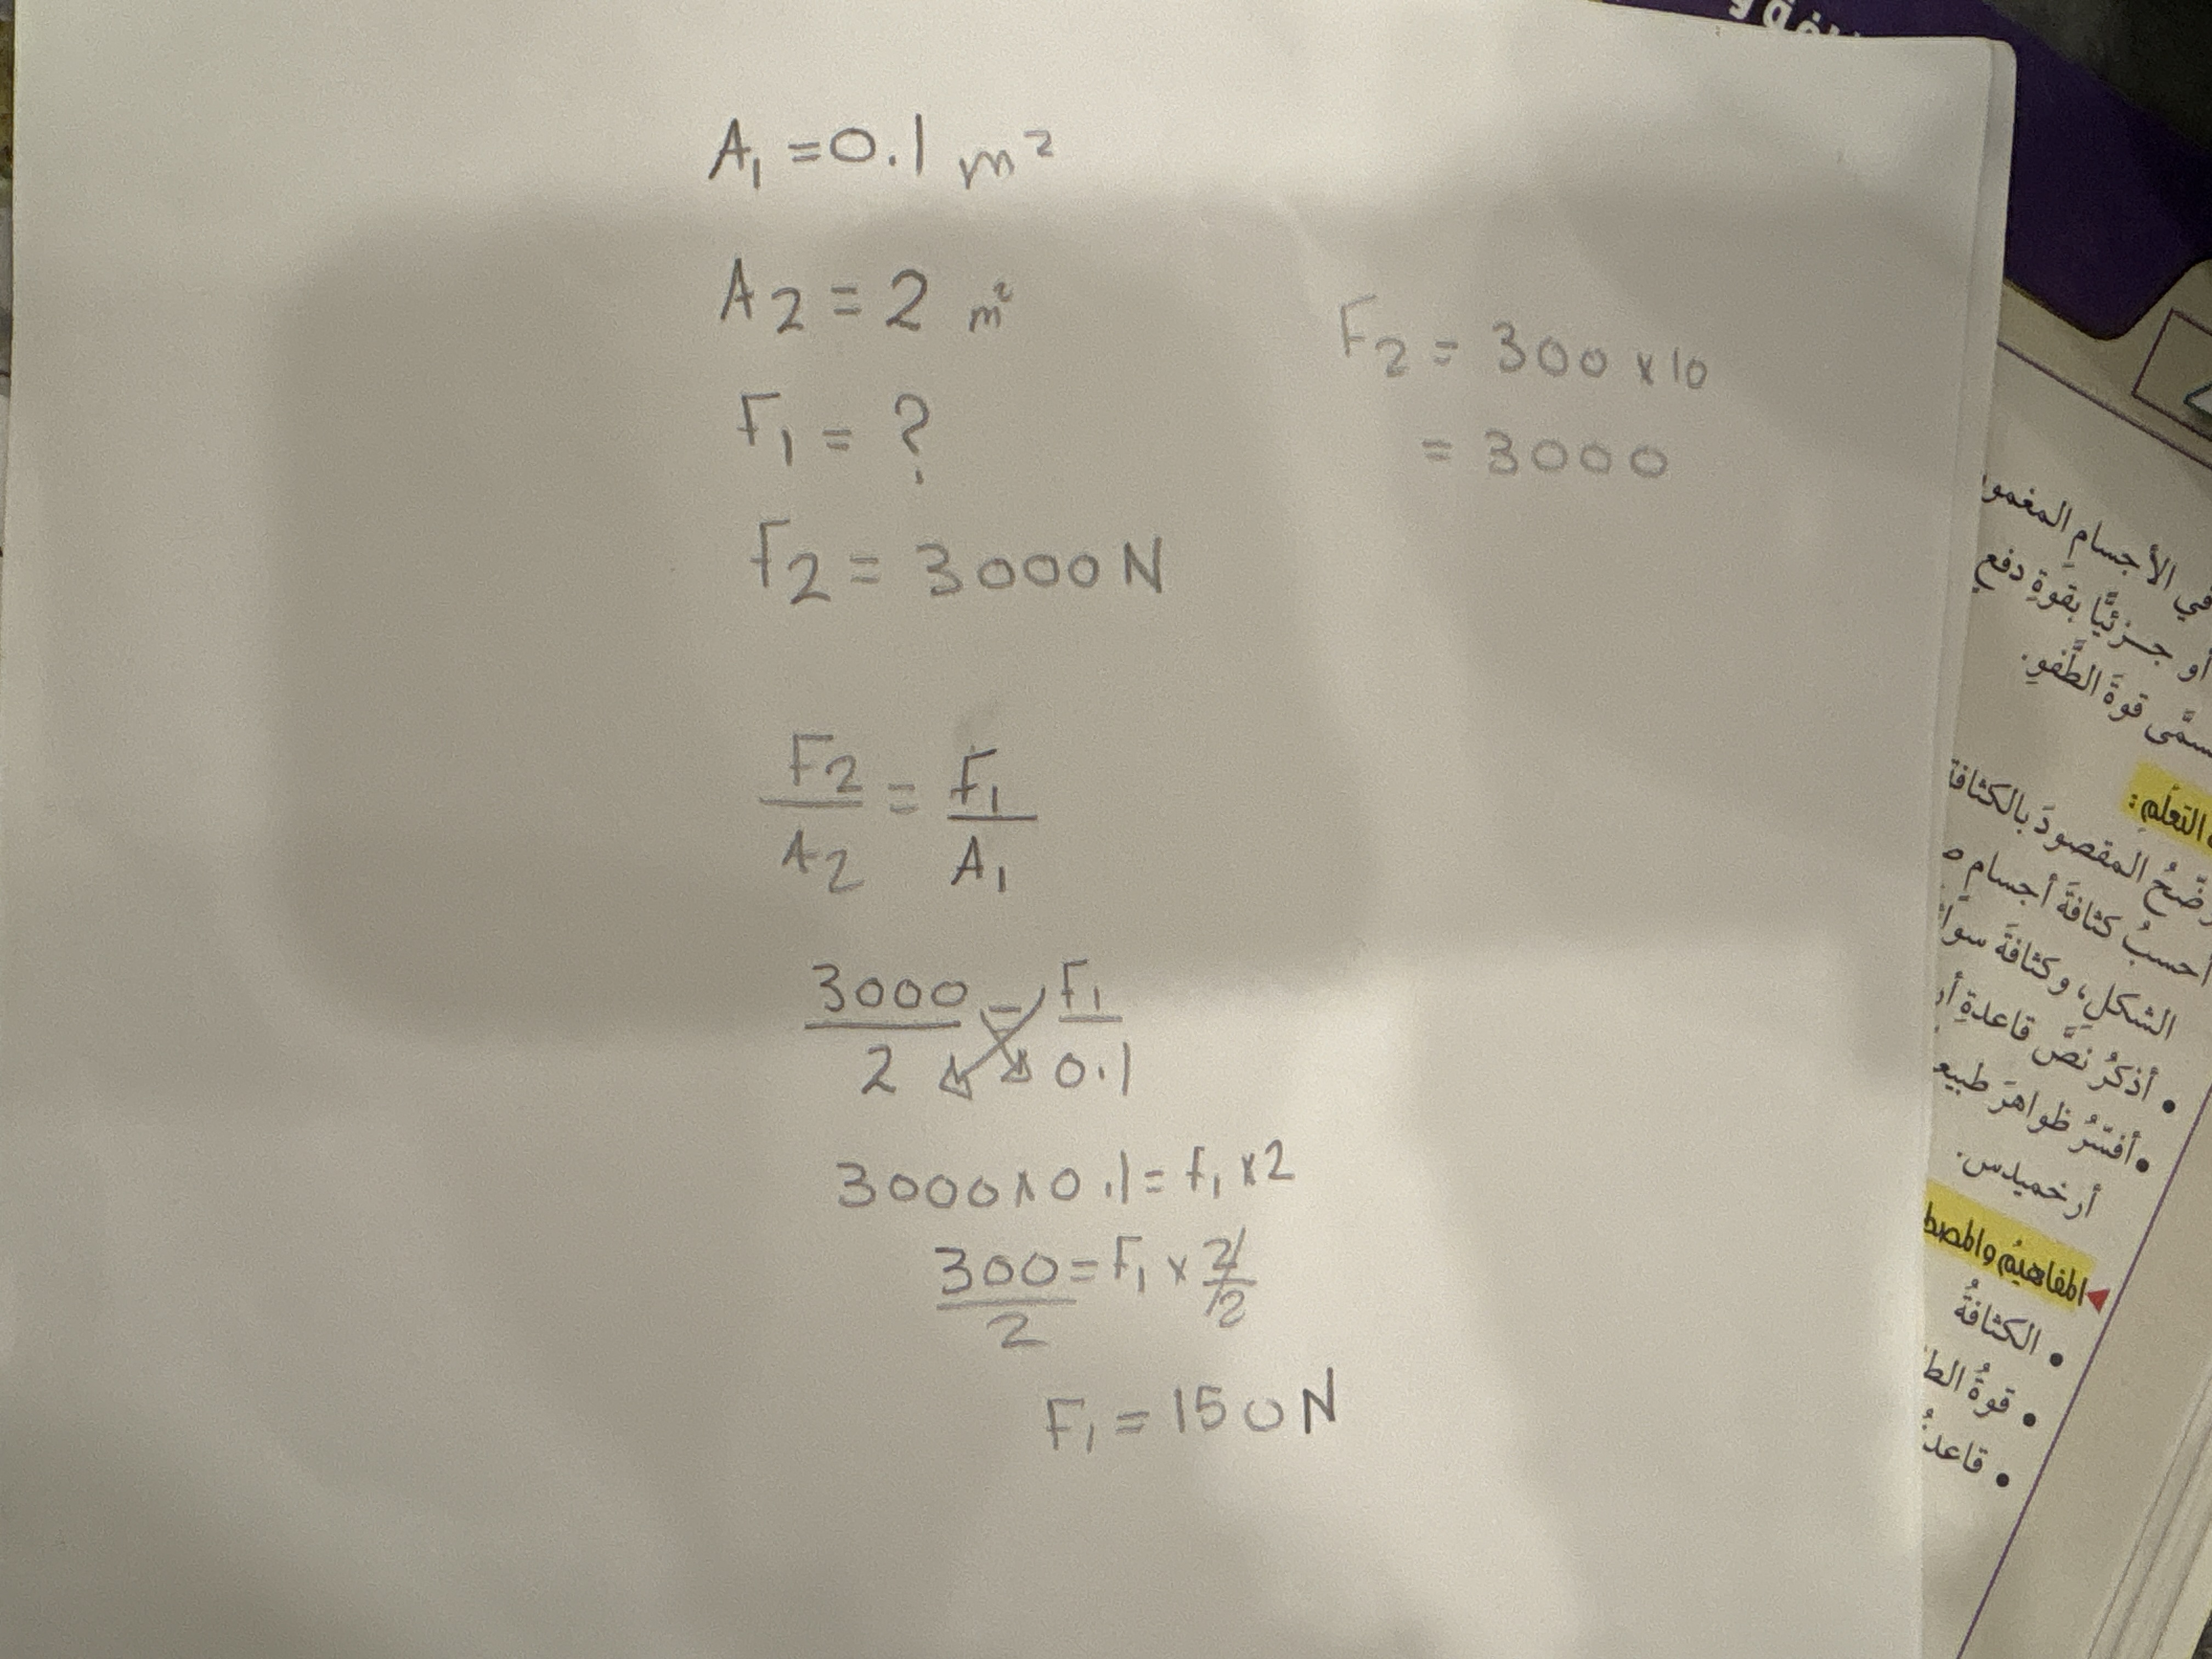 A₁ = 0.1 m²
A₂ = 2 m²
F₁ = ?
F₂ = 3000 N
F₂ = 300 x 10
= 3000
F₂/A₂ = F₁/A₁
3000/2 = F₁/0.1
3000 x 0.1 = F₁ x 2
300/2 = F₁ x 2/2
F₁ = 150 N
في الأجسامِ
أو جزئيًّا بقوةِ دفعٍ
قوةَ الطَّفوِ.
التعلُّمِ:
المقصودَ بالكثافةِ
أحسبُ كثافةَ أجسامٍ
الشكلِ، وكثافةَ
• أذكرُ نصَّ قاعدةِ
• أفسّرُ ظواهرَ
أرخميدس.
المفاهيمُ
• الكثافةُ
• قوةُ
•